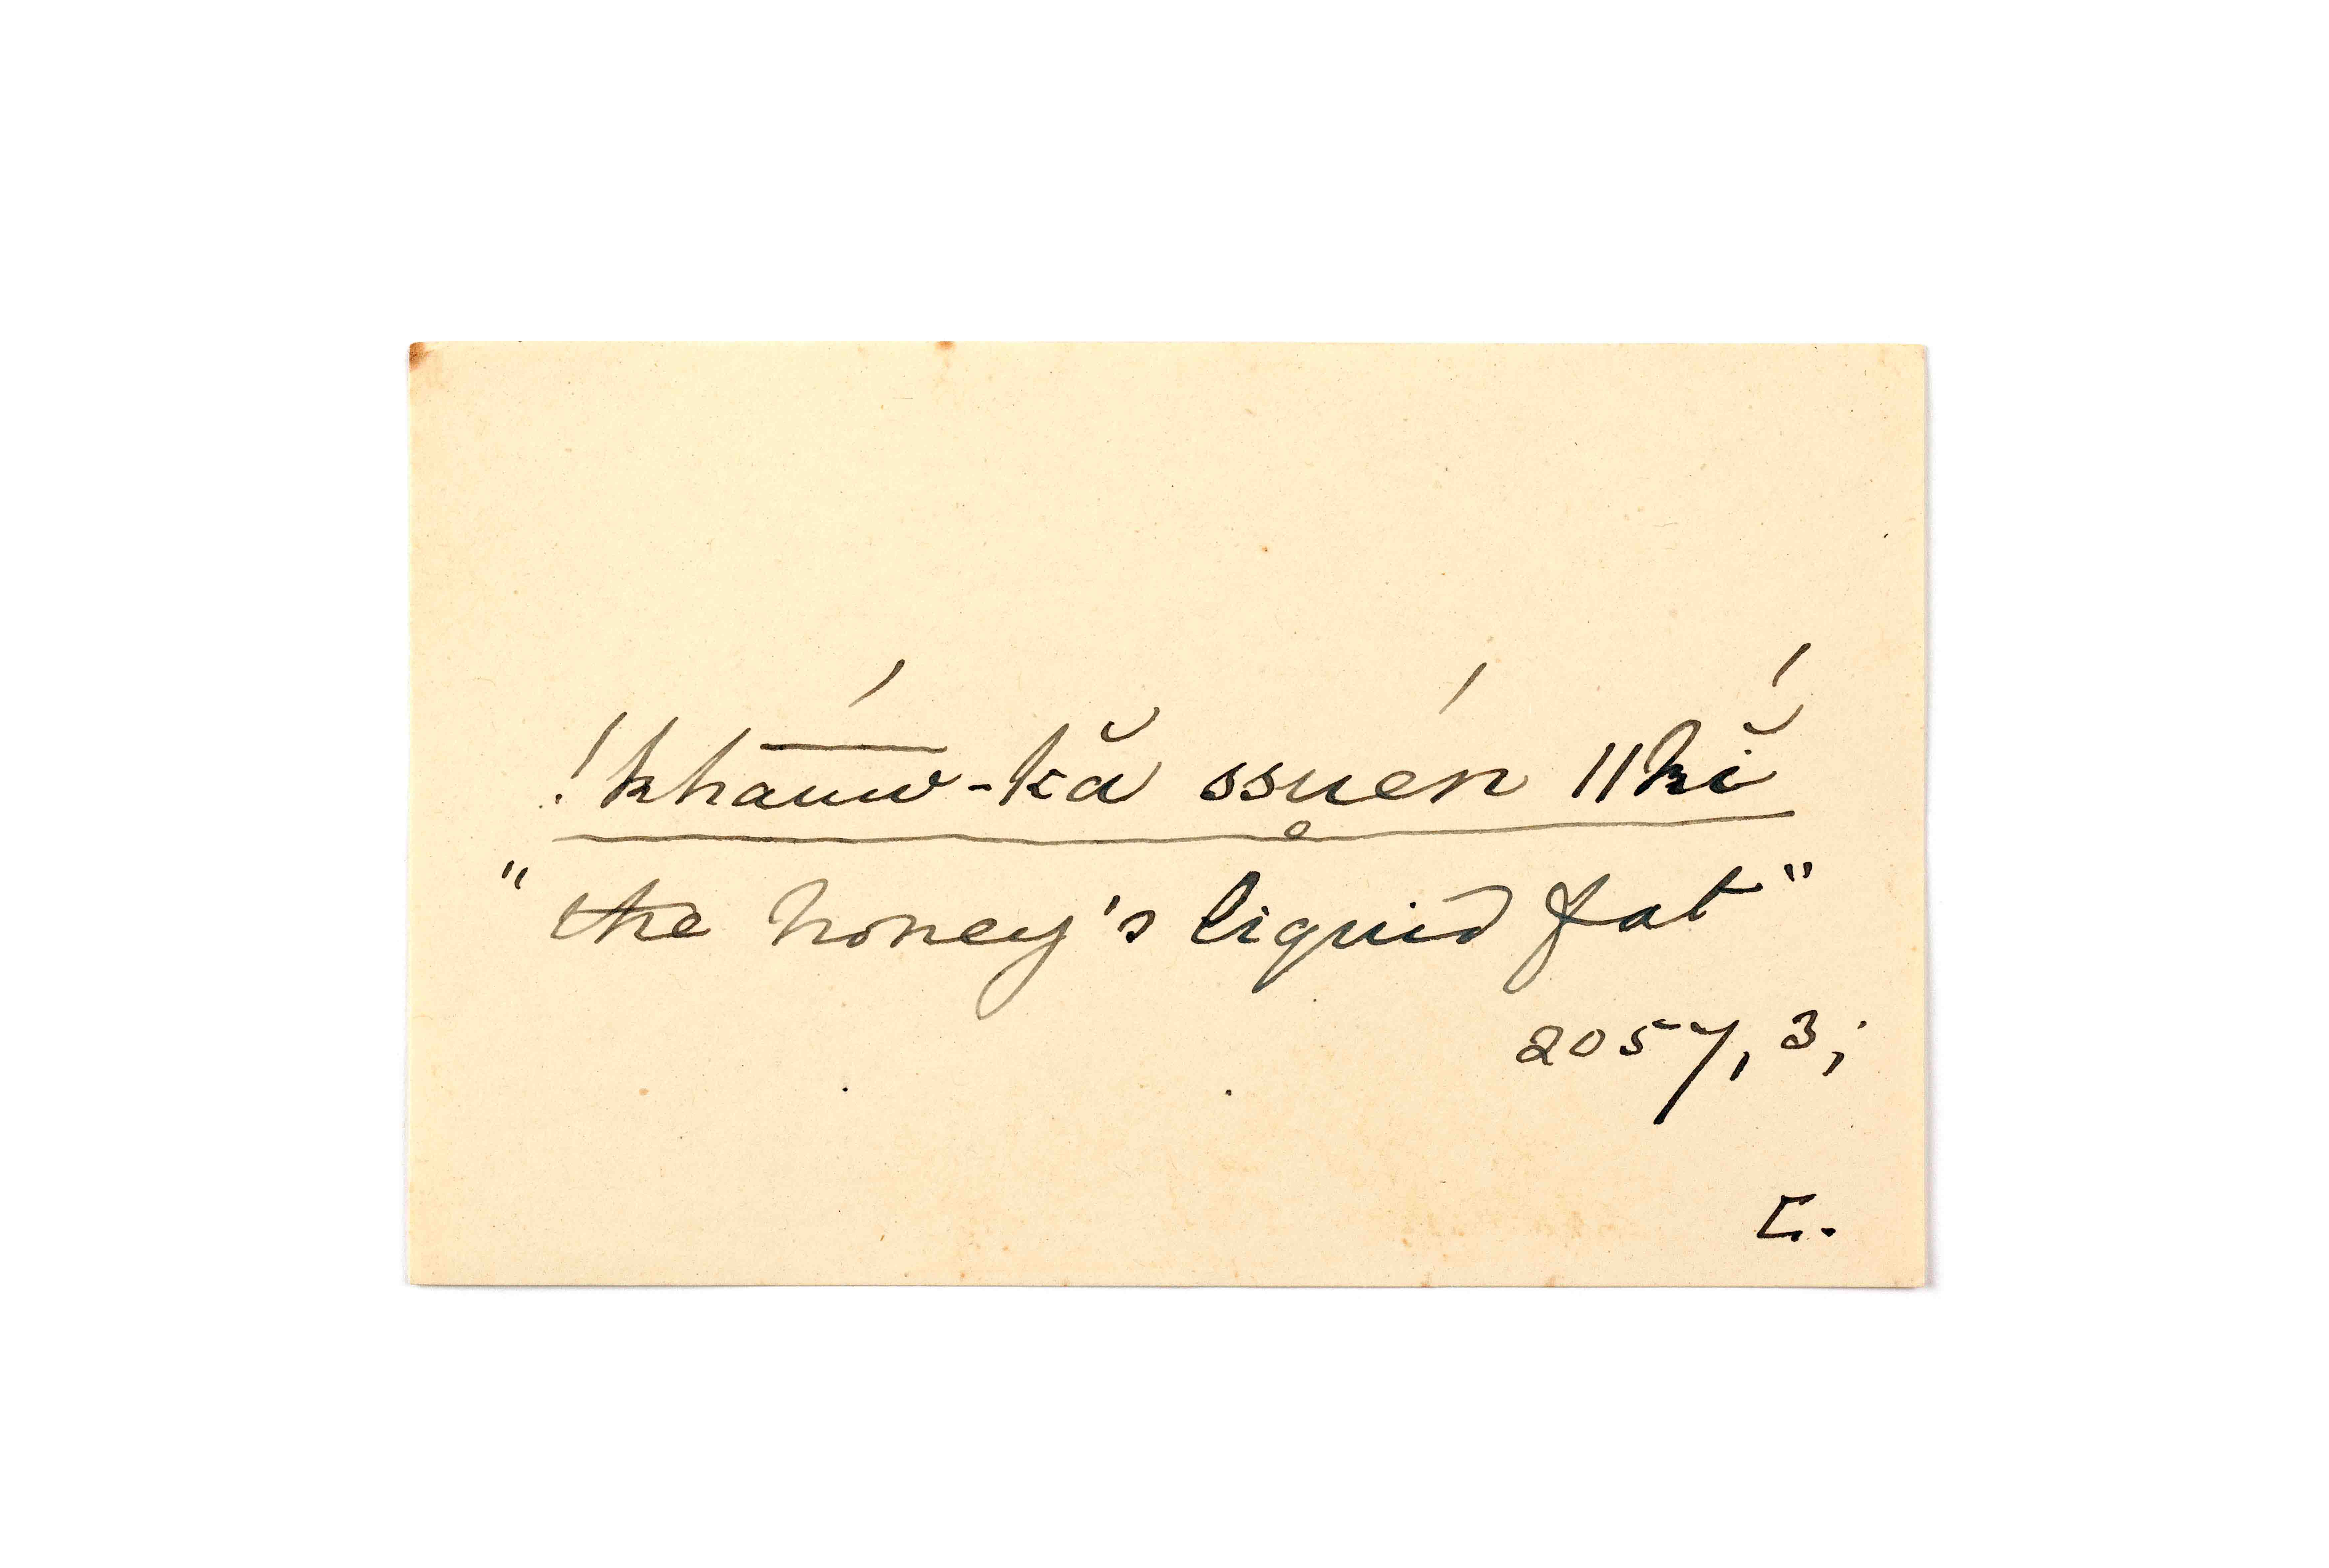 !kha͞u͞ẃ-kă ssuén̥ ǁkĭ́
"the honey's liquid fat"
2057, 3;
L.